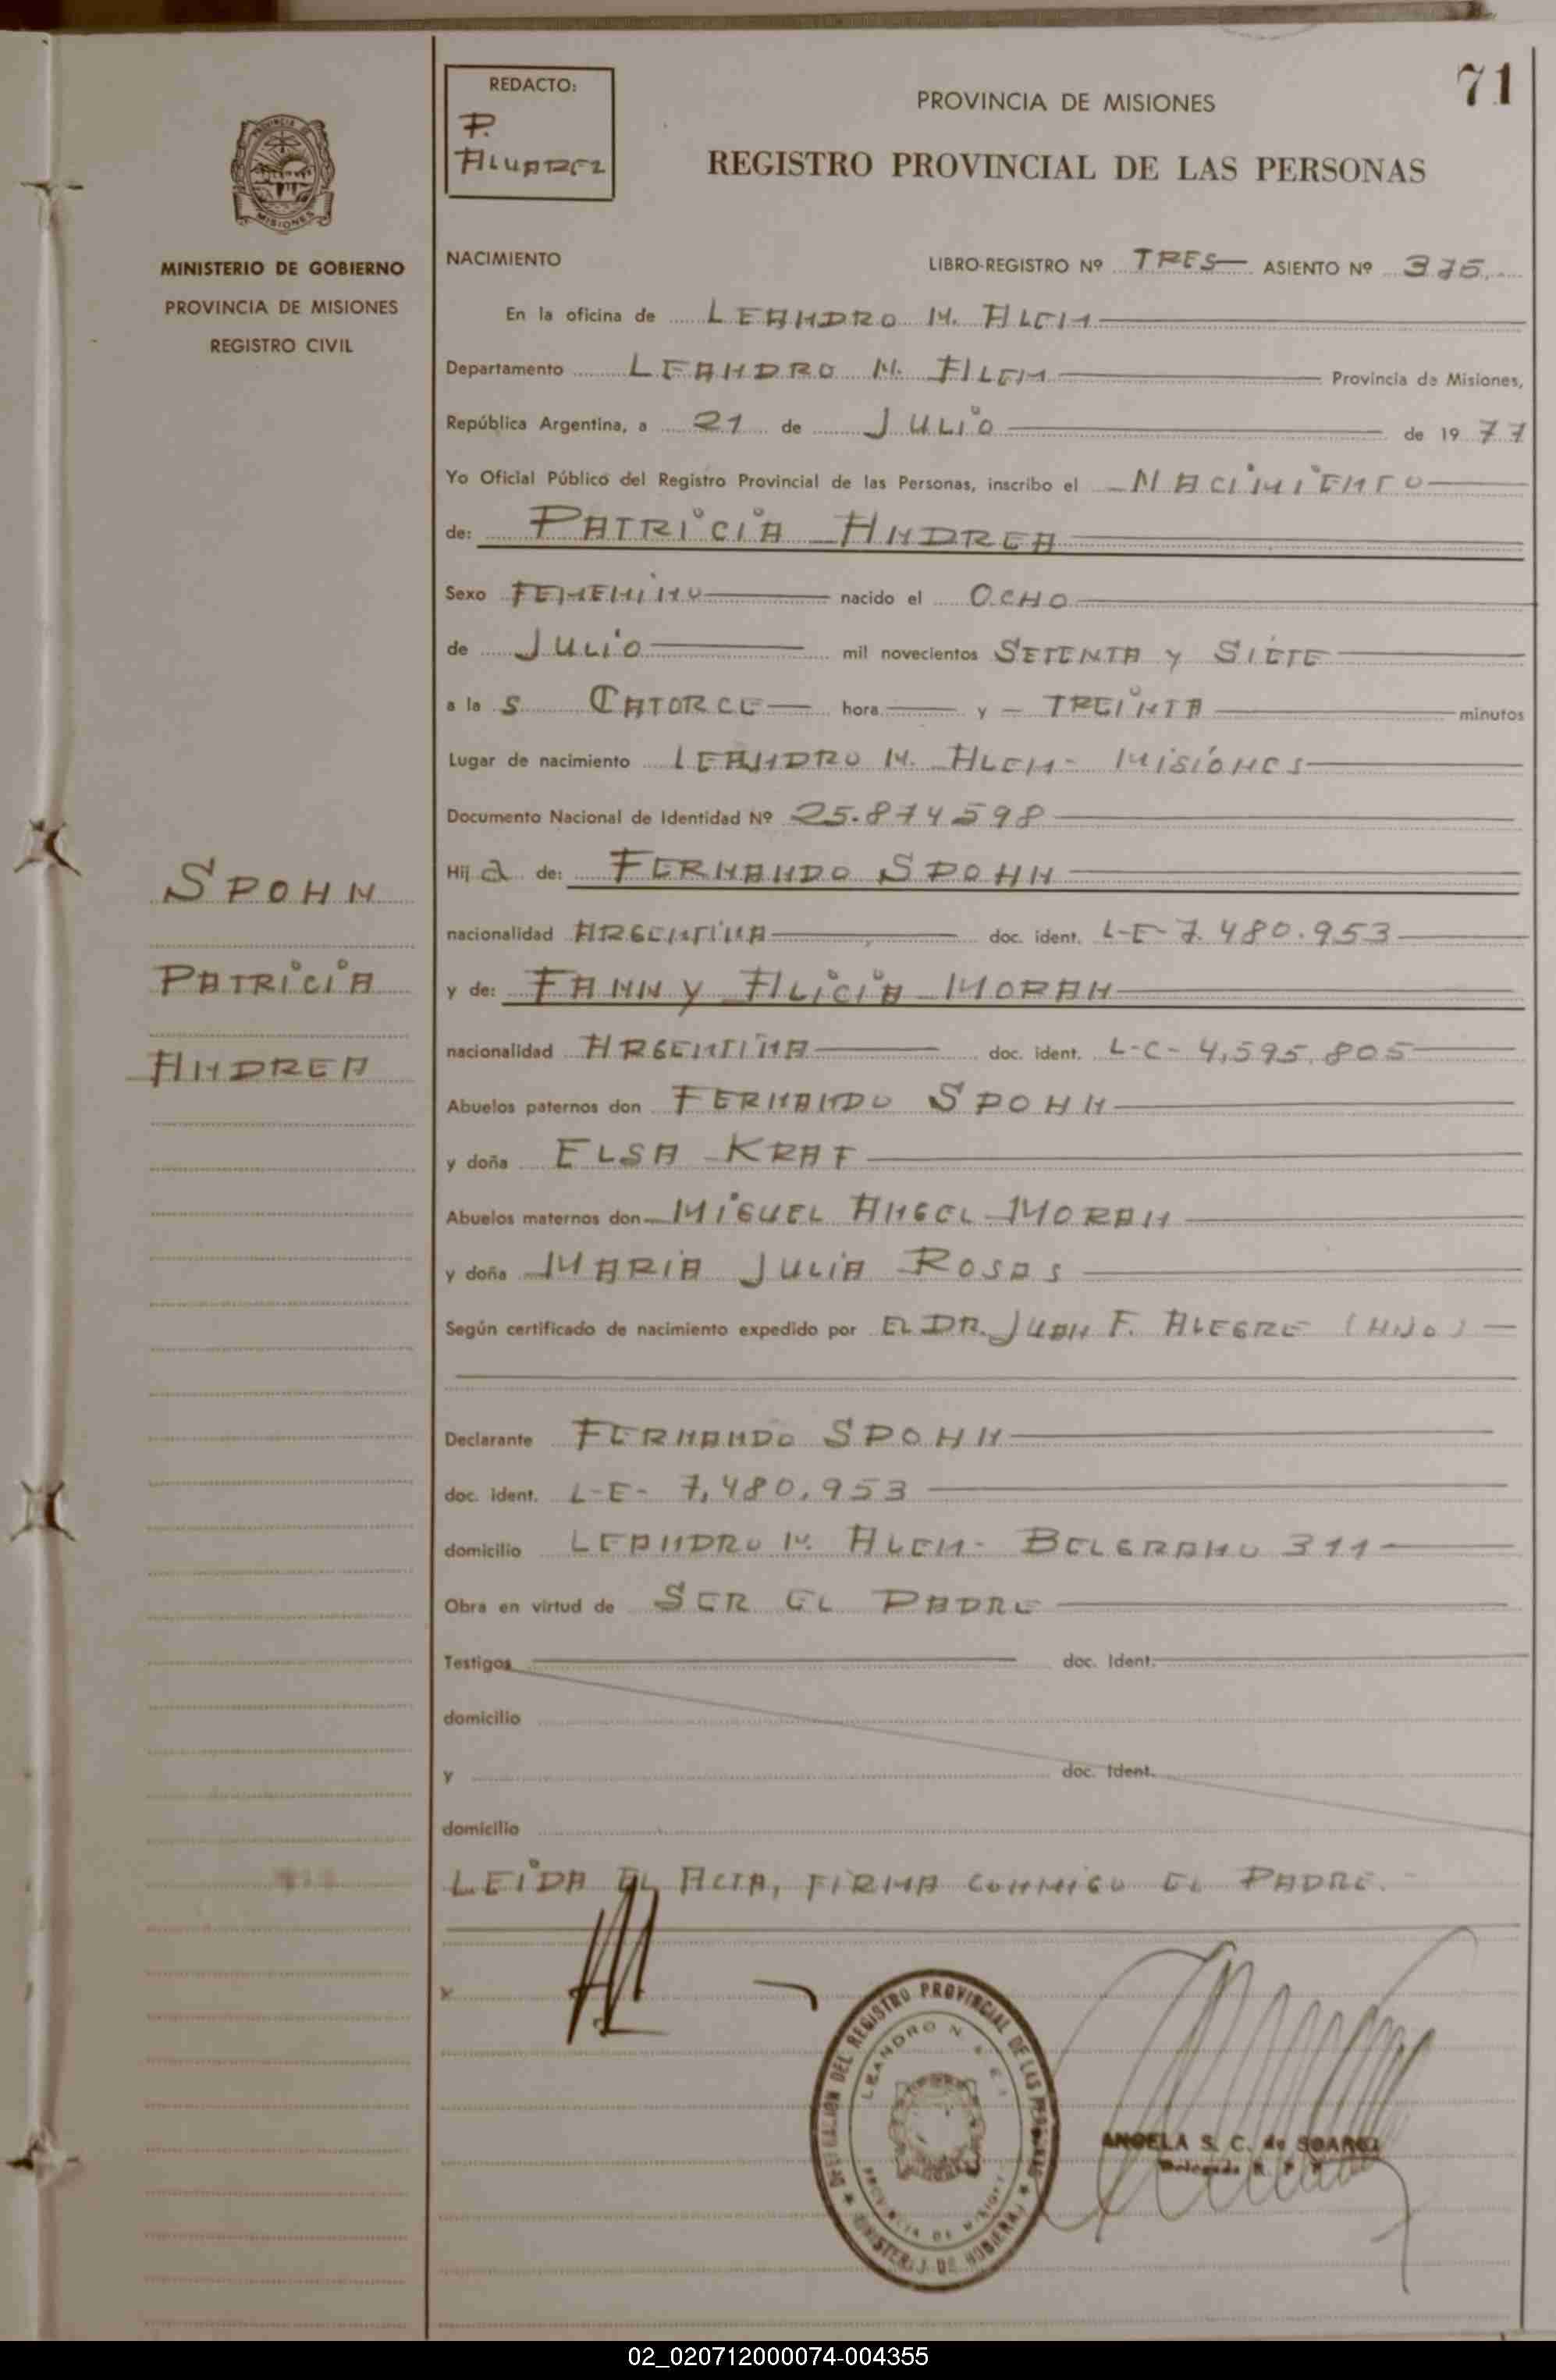 71
REDACTO:
P.
ALVAREZ
PROVINCIA DE MISIONES
REGISTRO PROVINCIAL DE LAS PERSONAS
MISIONES
MINISTERIO DE GOBIERNO
PROVINCIA DE MISIONES
REGISTRO CIVIL
NACIMIENTO LIBRO-REGISTRO Nº TRES ASIENTO Nº 375.
En la oficina de LEANDRO N. ALEM
Departamento LEANDRO N. ALEM Provincia de Misiones,
República Argentina, a 21 de JULIO de 1977
Yo Oficial Público del Registro Provincial de las Personas, inscribo el NACIMIENTO
de: PATRICIA ANDREA
Sexo FEMENINO nacido el OCHO
de JULIO mil novecientos SETENTA Y SIETE
a las CATORCE hora y TREINTA minutos
Lugar de nacimiento LEANDRO N. ALEM - MISIONES
Documento Nacional de Identidad Nº 25.874598
Hija de: FERNANDO SPOHN
nacionalidad ARGENTINA doc. ident. L-E-7.480.953
y de: FANNY ALICIA MORAN
nacionalidad ARGENTINA doc. ident. L-C-4,595.805
Abuelos paternos don FERNANDO SPOHN
y doña ELSA KRAF
Abuelos maternos don MIGUEL ANGEL MORAN
y doña MARIA JULIA ROSAS
Según certificado de nacimiento expedido por EL DR. JUAN F. ALEGRE (HIJO)
Declarante FERNANDO SPOHN
doc. ident. L-E- 7,480.953
domicilio LEANDRO N. ALEM - BELGRANO 311
Obra en virtud de SER EL PADRE
Testigos doc. Ident.
domicilio
y doc. Ident.
domicilio
LEIDA EL ACTA, FIRMA CONMIGO EL PADRE.-
SPOHN
PATRICIA
ANDREA
x
DELEGACION DEL REGISTRO PROVINCIAL DE LAS PERSONAS
LEANDRO N.
PROVINCIA DE MISIONES
ANGELA S. C. de
Delegada R. P. P.
02_020712000074-004355